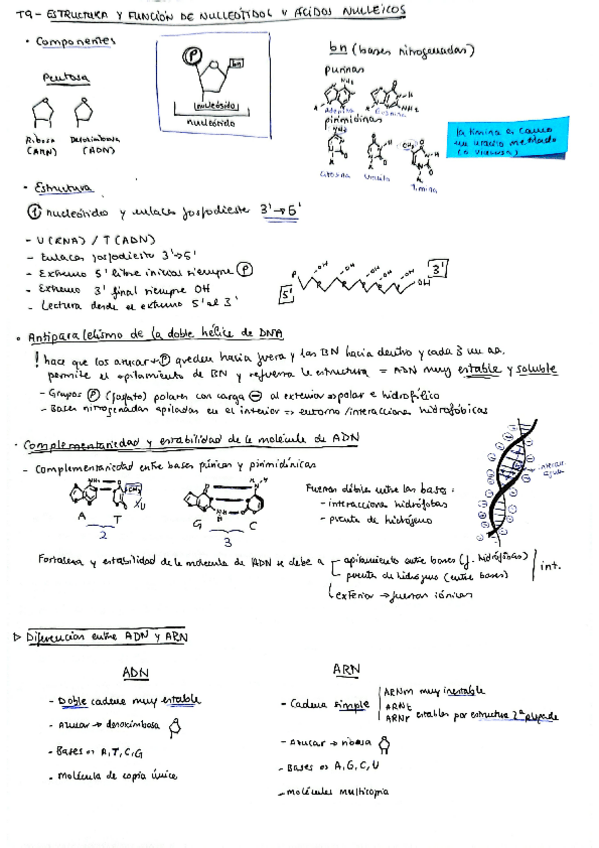 T9 - ESTRUCTURA Y FUNCIÓN DE NUCLEÓTIDOS Y ÁCIDOS NUCLEICOS
· Componentes
Pentosa
Ribosa Desoxirribosa
(ARN) (ADN)
P bn
nucleósido
nucleótido
bn (bases nitrogenadas)
purinas
Adenina Guanina
pirimidinas
Citosina Uracilo Timina
la timina es como
un uracilo metilado
(o viceversa)
· Estructura
① nucleótido y enlaces fosfodiester 3'→5'
- U(RNA) / T(ADN)
- Enlaces fosfodiester 3'→5'
- Extremo 5' libre inicial siempre P
- Extremo 3' final siempre OH
- Lectura desde el extremo 5' al 3'
5' P OH OH OH OH OH OH 3'
· Antiparalelismo de la doble hélice de DNA
! hace que los azúcar + P queden hacia fuera y las BN hacia dentro y cada 3 un aa.
permite el apilamiento de BN y refuerza la estructura = ADN muy estable y soluble
- Grupos P (fosfato) polares con carga ⊖ al exterior → polar e hidrofílico
- Bases nitrogenadas apiladas en el interior → entorno/interacciones hidrofóbicas
· Complementariedad y estabilidad de la molécula de ADN
- Complementariedad entre bases púricas y pirimidínicas
A T XU G C
2 3
Fuerzas débiles entre las bases:
- interacciones hidrófobas
- puente de hidrógeno
Fortaleza y estabilidad de la molécula de ADN se debe a
apilamiento entre bases (f. hidrófobas)
puente de hidrógeno (entre bases)
int.
exterior → fuerzas iónicas
▷ Diferencias entre ADN y ARN
ADN
- Doble cadena muy estable
- Azúcar → desoxirribosa
- Bases → A, T, C, G
- Molécula de copia única
ARN
- Cadena simple
ARNm muy inestable
ARNt
ARNr estables por estructura 2ª plegada
- Azúcar → ribosa
- Bases → A, G, C, U
- moléculas multicopia